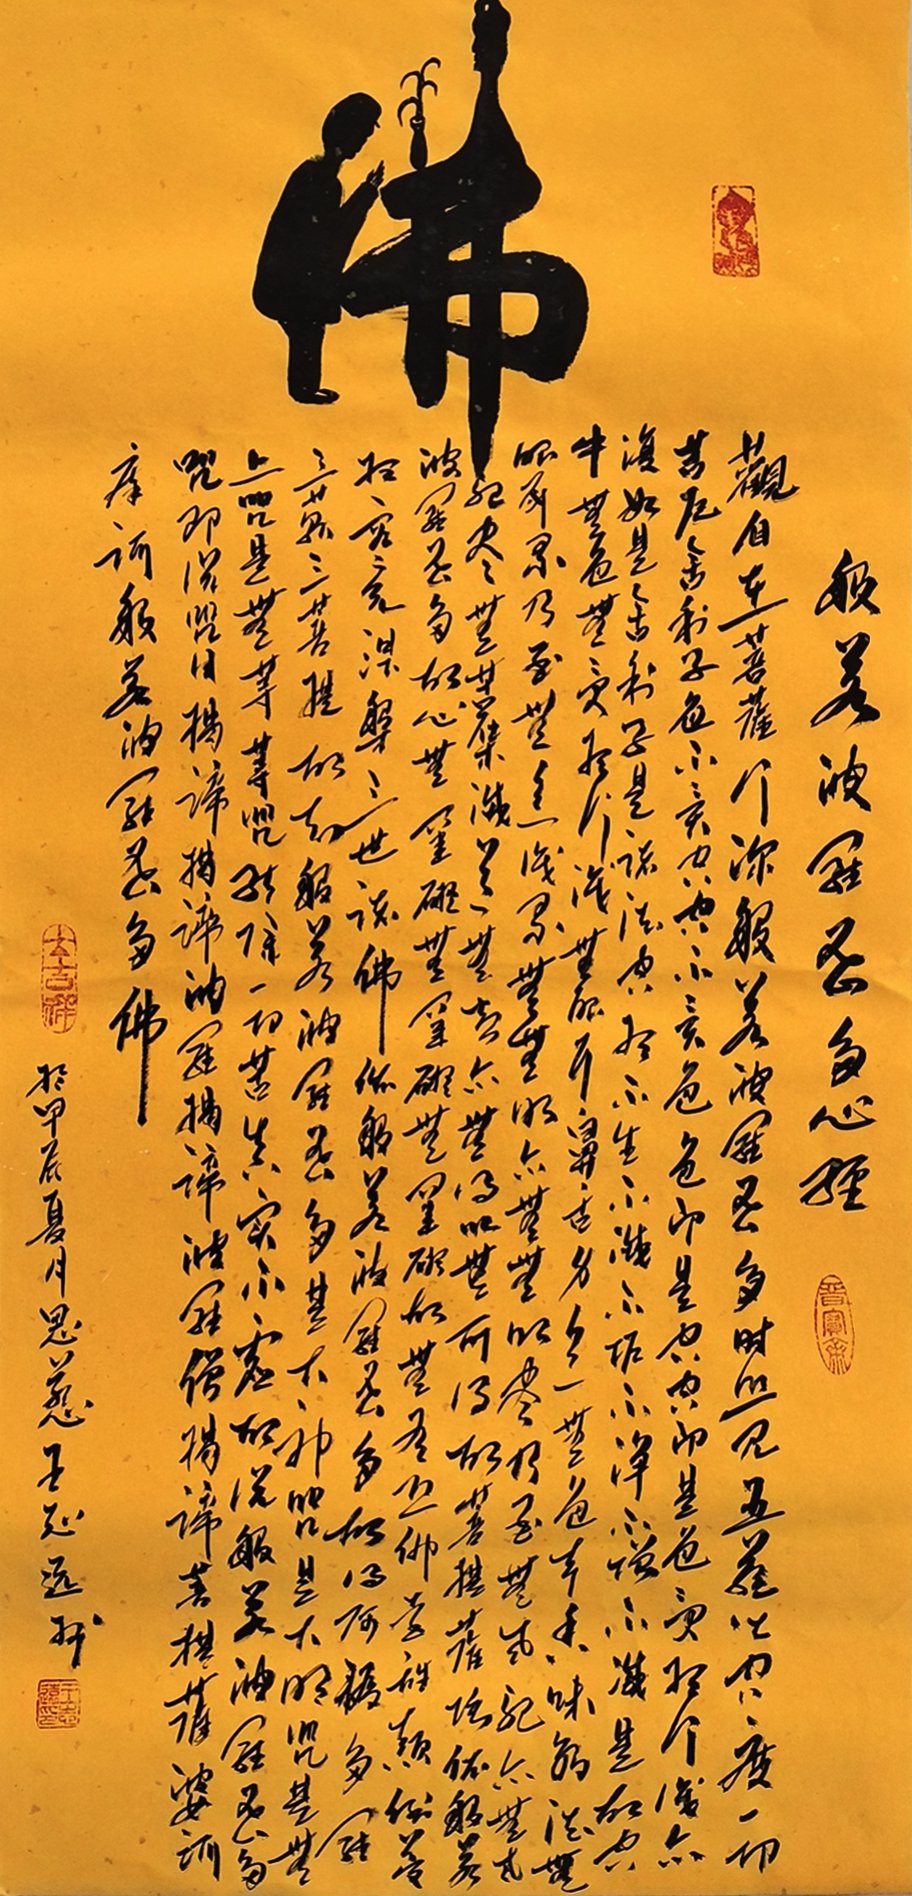 佛
般若波羅蜜多心經
觀自在菩薩行深般若波羅蜜多時照见五蘊皆空度一切
苦厄舍利子色不異空空不異色色即是空空即是色受想行識亦
復如是舍利子是諸法空相不生不滅不垢不淨不增不減是故空
中無色無受想行識無眼耳鼻舌身意無色声香味觸法無
眼界乃至無意識界無無明亦無無明盡乃至無老死亦無老
死尽無苦集滅道無智亦無得以無所得故菩提薩埵依般若
波羅蜜多故心無罣礙無罣礙無罣礙故無有恐怖遠離顛倒夢
想究竟涅槃三世諸佛依般若波羅蜜多故得阿耨多羅
三藐三菩提故知般若波羅蜜多是大神咒是大明咒是無
上咒是無等等咒能除一切苦真实不虛故说般若波羅蜜多
咒即说咒曰揭諦揭諦波羅揭諦波羅僧揭諦菩提薩婆訶
摩訶般若波羅蜜多佛
大吉祥
於甲辰夏月思慈王志远书